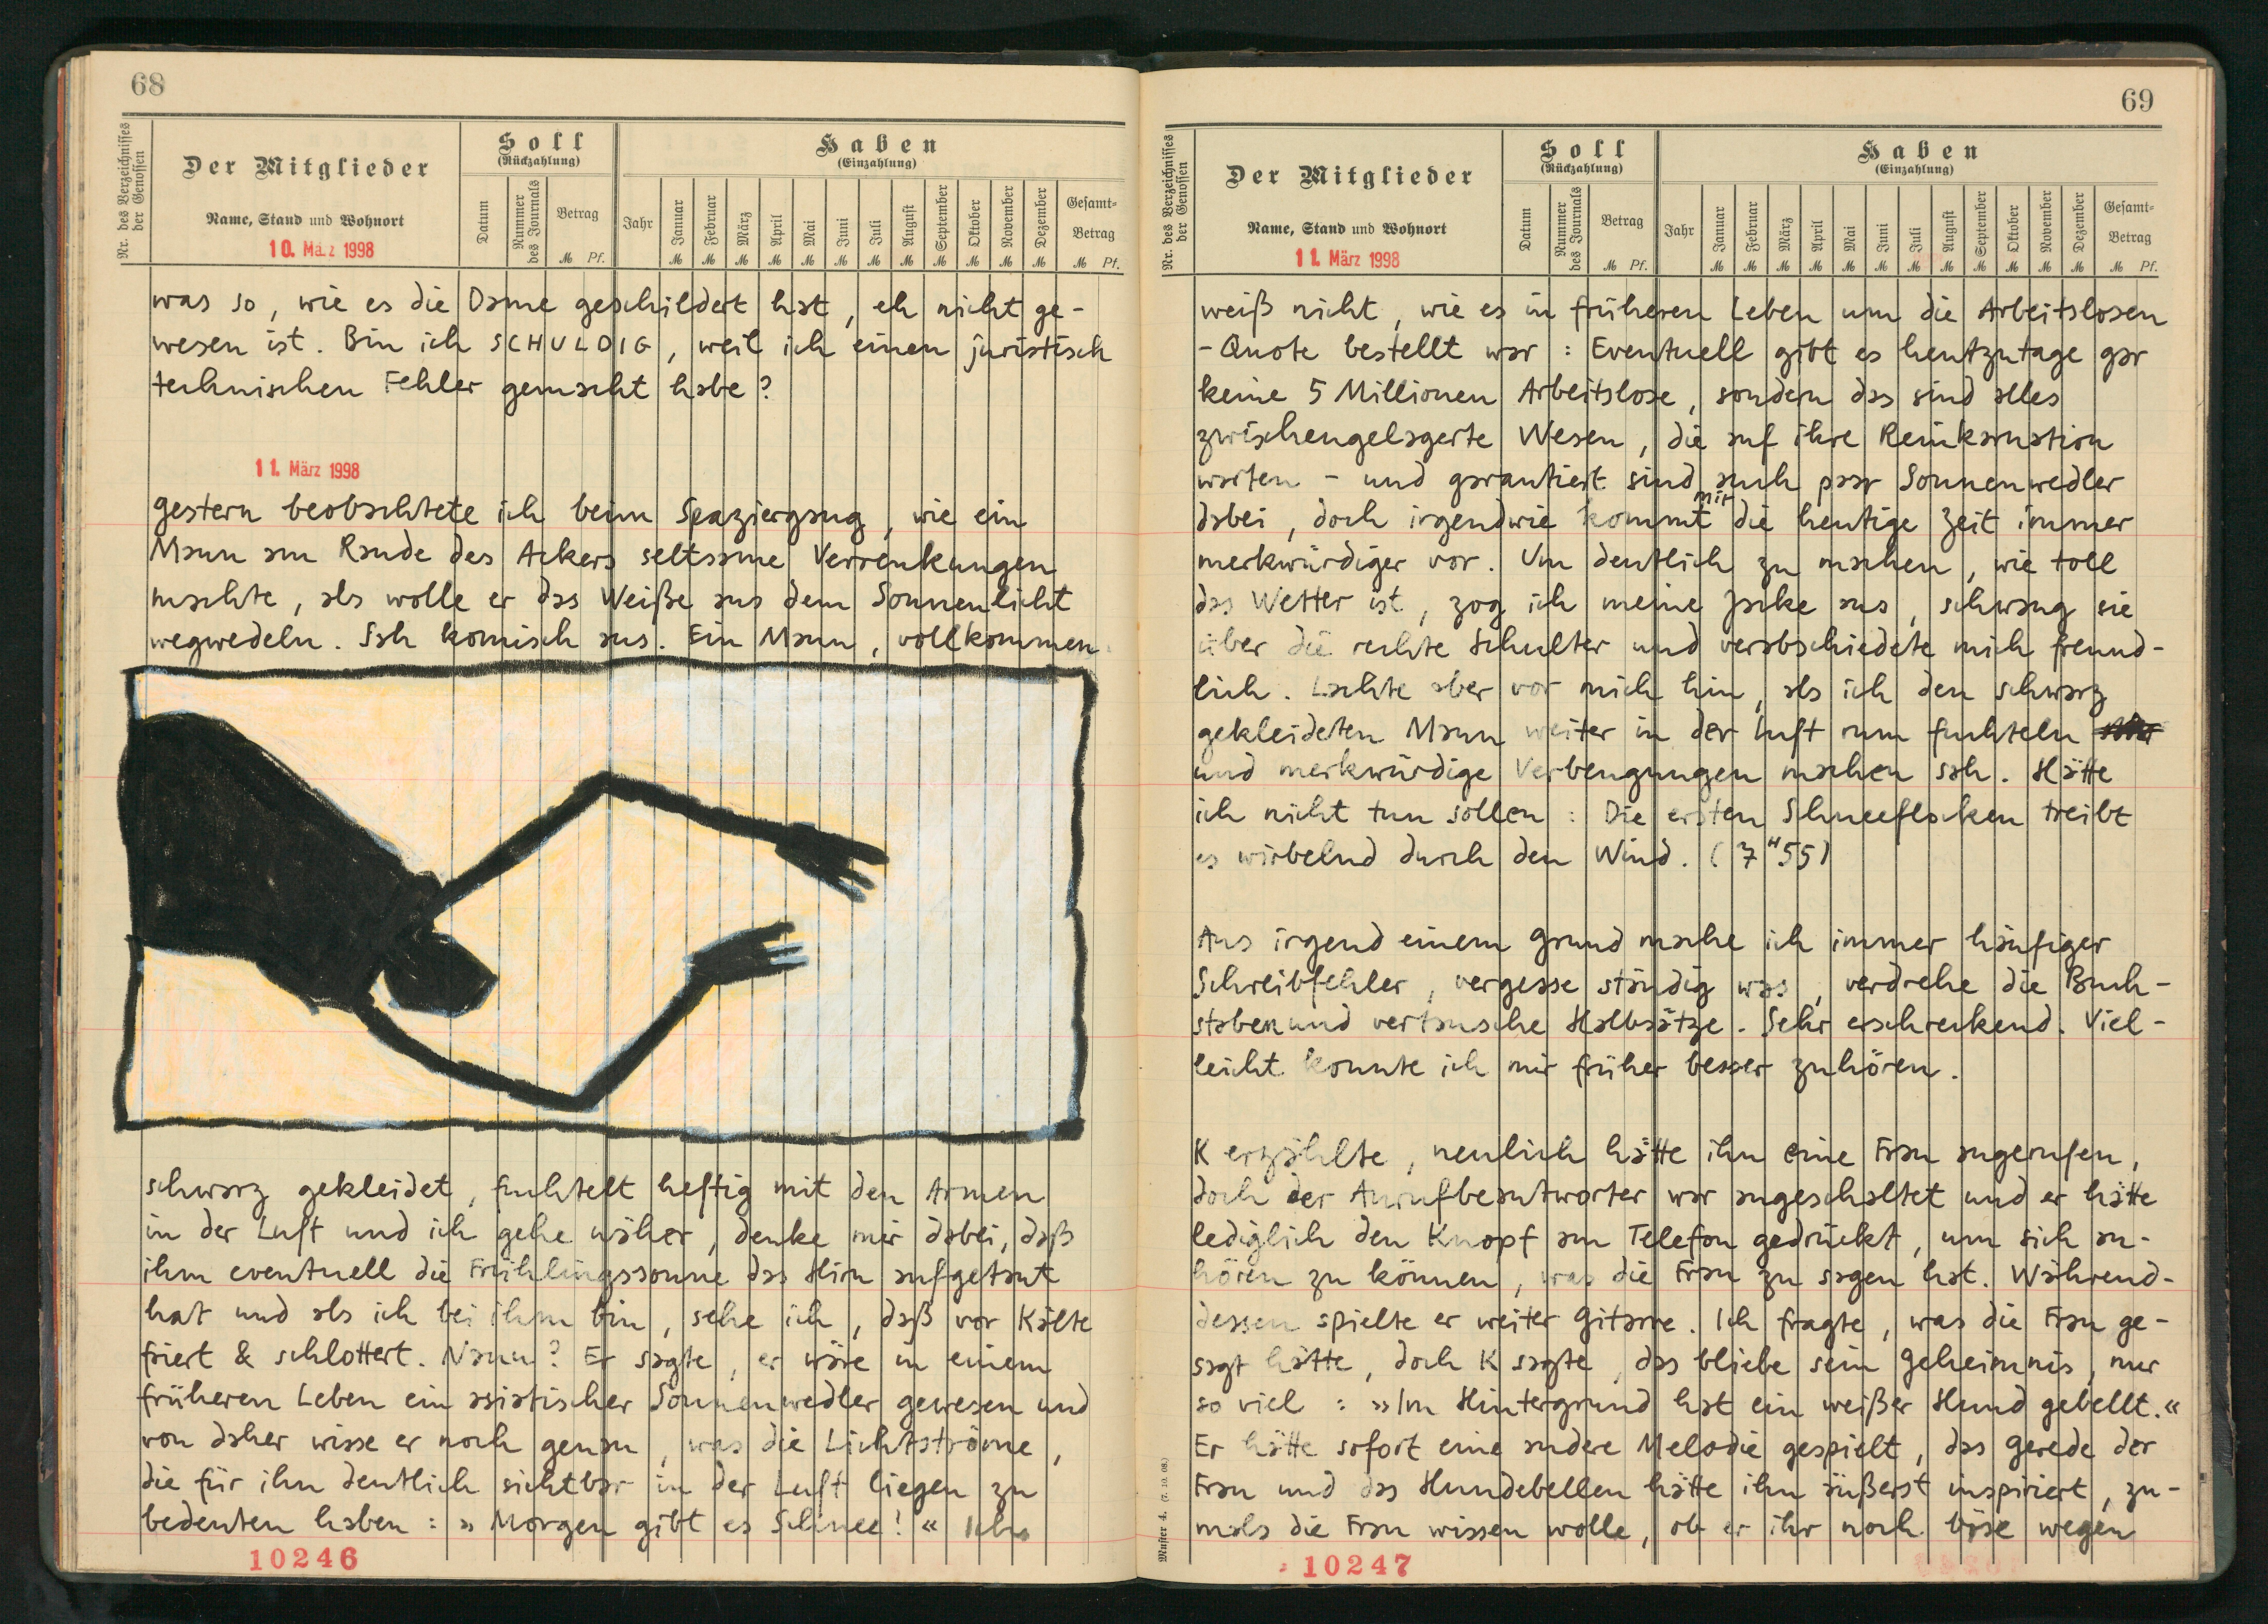 68
Nr. des Verzeichnisses der Genossen
Der Mitglieder
Name, Stand und Wohnort
10. März 1998
Soll
(Rückzahlung)
Datum
Nummer des Journals
Betrag
M Pf.
Haben
(Einzahlung)
Jahr
Januar
Februar
März
April
Mai
Juni
Juli
August
September
Oktober
November
Dezember
Gesamt-
Betrag
M M M M M M M M M M M M M Pf.
was so, wie es die Dame geschildert hat, eh nicht ge-
wesen ist. Bin ich SCHULDIG, weil ich einen juristisch
technischen Fehler gemacht habe?
11. März 1998
Gestern beobachtete ich beim Spaziergang, wie ein
Mann am Rande des Ackers seltsame Verrenkungen
machte, als wolle er das Weiße aus dem Sonnenlicht
wegwedeln. Sah komisch aus. Ein Mann, vollkommen
schwarz gekleidet, fuchtelt heftig mit den Armen
in der Luft und ich gehe näher, denke mir dabei, daß
ihm eventuell die Frühlingssonne das Hirn aufgetaut
hat und als ich bei ihm bin, sehe ich, daß vor Kälte
friert & schlottert. Nanu? Er sagte, er wäre in einem
früheren Leben ein asiatischer Sonnenwedler gewesen und
von daher wisse er noch genau, was die Lichtströme,
die für ihn deutlich sichtbar in der Luft liegen zu
bedeuten haben: » Morgen gibt es Schnee! « Ich
10246
69
Nr. des Verzeichnisses der Genossen
Der Mitglieder
Name, Stand und Wohnort
11. März 1998
Soll
(Rückzahlung)
Datum
Nummer des Journals
Betrag
M Pf.
Haben
(Einzahlung)
Jahr
Januar
Februar
März
April
Mai
Juni
Juli
August
September
Oktober
November
Dezember
Gesamt-
Betrag
M M M M M M M M M M M M M Pf.
weiß nicht, wie es in früheren Leben um die Arbeitslosen
-Quote bestellt war: Eventuell gibt es heutzutage gar
keine 5 Millionen Arbeitslose, sondern das sind alles
zwischengelagerte Wesen, die auf ihre Reinkarnation
warten - und garantiert sind auch paar Sonnenwedler
dabei, doch irgendwie kommt mir die heutige Zeit immer
merkwürdiger vor. Um deutlich zu machen, wie toll
das Wetter ist, zog ich meine Jacke aus, schwang sie
über die rechte Schulter und verabschiedete mich freund-
lich. Lachte aber vor mich hin, als ich den schwarz
gekleideten Mann weiter in der Luft rum fuchteln
und merkwürdige Verbeugungen machen sah. Hätte
ich nicht tun sollen: Die ersten Schneeflocken treibt
es wirbelnd durch den Wind. (7"55)
Aus irgend einem Grund mache ich immer häufiger
Schreibfehler, vergesse ständig was, verdrehe die Buch-
staben und vertausche Halbsätze. Sehr erschreckend. Viel-
leicht konnte ich mir früher besser zuhören.
K erzählte, neulich hätte ihn eine Frau angerufen,
doch der Anrufbeantworter war angeschaltet und er hätte
lediglich den Knopf am Telefon gedrückt, um sich an-
hören zu können, was die Frau zu sagen hat. Während-
dessen spielte er weiter Gitarre. Ich fragte, was die Frau ge-
sagt hätte, doch K sagte, das bliebe sein Geheimnis, nur
so viel: »Im Hintergrund hat ein weißer Hund gebellt.«
Er hätte sofort eine andere Melodie gespielt, das Gerede der
Frau und das Hundebellen hätte ihn äußerst inspiriert, zu-
mals die Frau wissen wolle, ob er ihr noch böse wegen
Muster 4. (7. 10. 08.)
10247